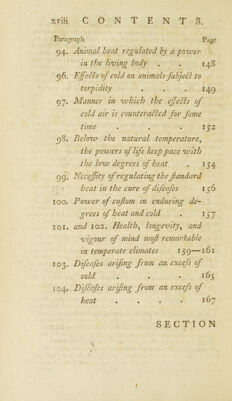 xviii CONTENTS.
Paragraph Page
94. Animal heat regulated by a power
in the living body . . 148
96. Effects of cold on animals subject to
torpidity . . . 149
97. Manner in which the effects of
cold air is counteracted for some
time . . . . 152
98. Below the natural temperature,
the powers of life keep pace with
the low degrees of heat . 154
99. Necessity of regulating the standard
heat in the cure of diseases 156
100. Power of custom in enduring de-
grees of heat and cold . 157
101. and 102. Health, longevity, and
vigour of mind most remarkable
in temperate climates 159—161
103. Diseases arising from an excess of
cold . . . . 165
104. Diseases arising from an excess of
heat . . . . 167
SECTION